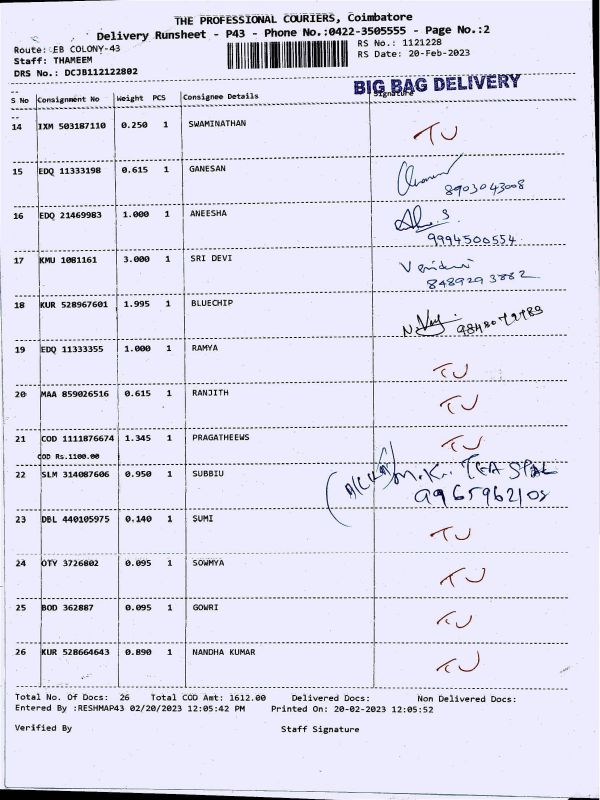 THE PROFESSIONAL COURIERS, Coimbatore
Delivery Runsheet - P43 - Phone No.:0422-3505555 - Page No.:2
Route: EB COLONY-43 RS No.: 1121228
Staff: THAMEEM RS Date: 20-Feb-2023
DRS No.: DCJB112122802
BIG BAG DELIVERY
S No Consignment No Weight PCS Consignee Details Signature
14 IXM 503187110 0.250 1 SWAMINATHAN TU
15 EDQ 11333198 0.615 1 GANESAN
8903043008
16 EDQ 21469983 1.000 1 ANEESHA
9994500554
17 KMU 1081161 3.000 1 SRI DEVI
8489293882
18 KUR 528967601 1.995 1 BLUECHIP
19 EDQ 11333355 1.000 1 RAMYA TU
20 MAA 859026516 0.615 1 RANJITH TU
21 COD 1111876674 1.345 1 PRAGATHEEWS TU
COD Rs.1100.00
22 SLM 314087606 0.950 1 SUBBIU M.K. TEA STAL
9965962105
23 DBL 440105975 0.140 1 SUMI TU
24 OTY 3726802 0.095 1 SOWMYA TU
25 BOD 362887 0.095 1 GOWRI TU
26 KUR 528664643 0.890 1 NANDHA KUMAR TU
Total No. Of Docs: 26 Total COD Amt: 1612.00 Delivered Docs: Non Delivered Docs:
Entered By :RESHMAP43 02/20/2023 12:05:42 PM Printed On: 20-02-2023 12:05:52
Verified By Staff Signature